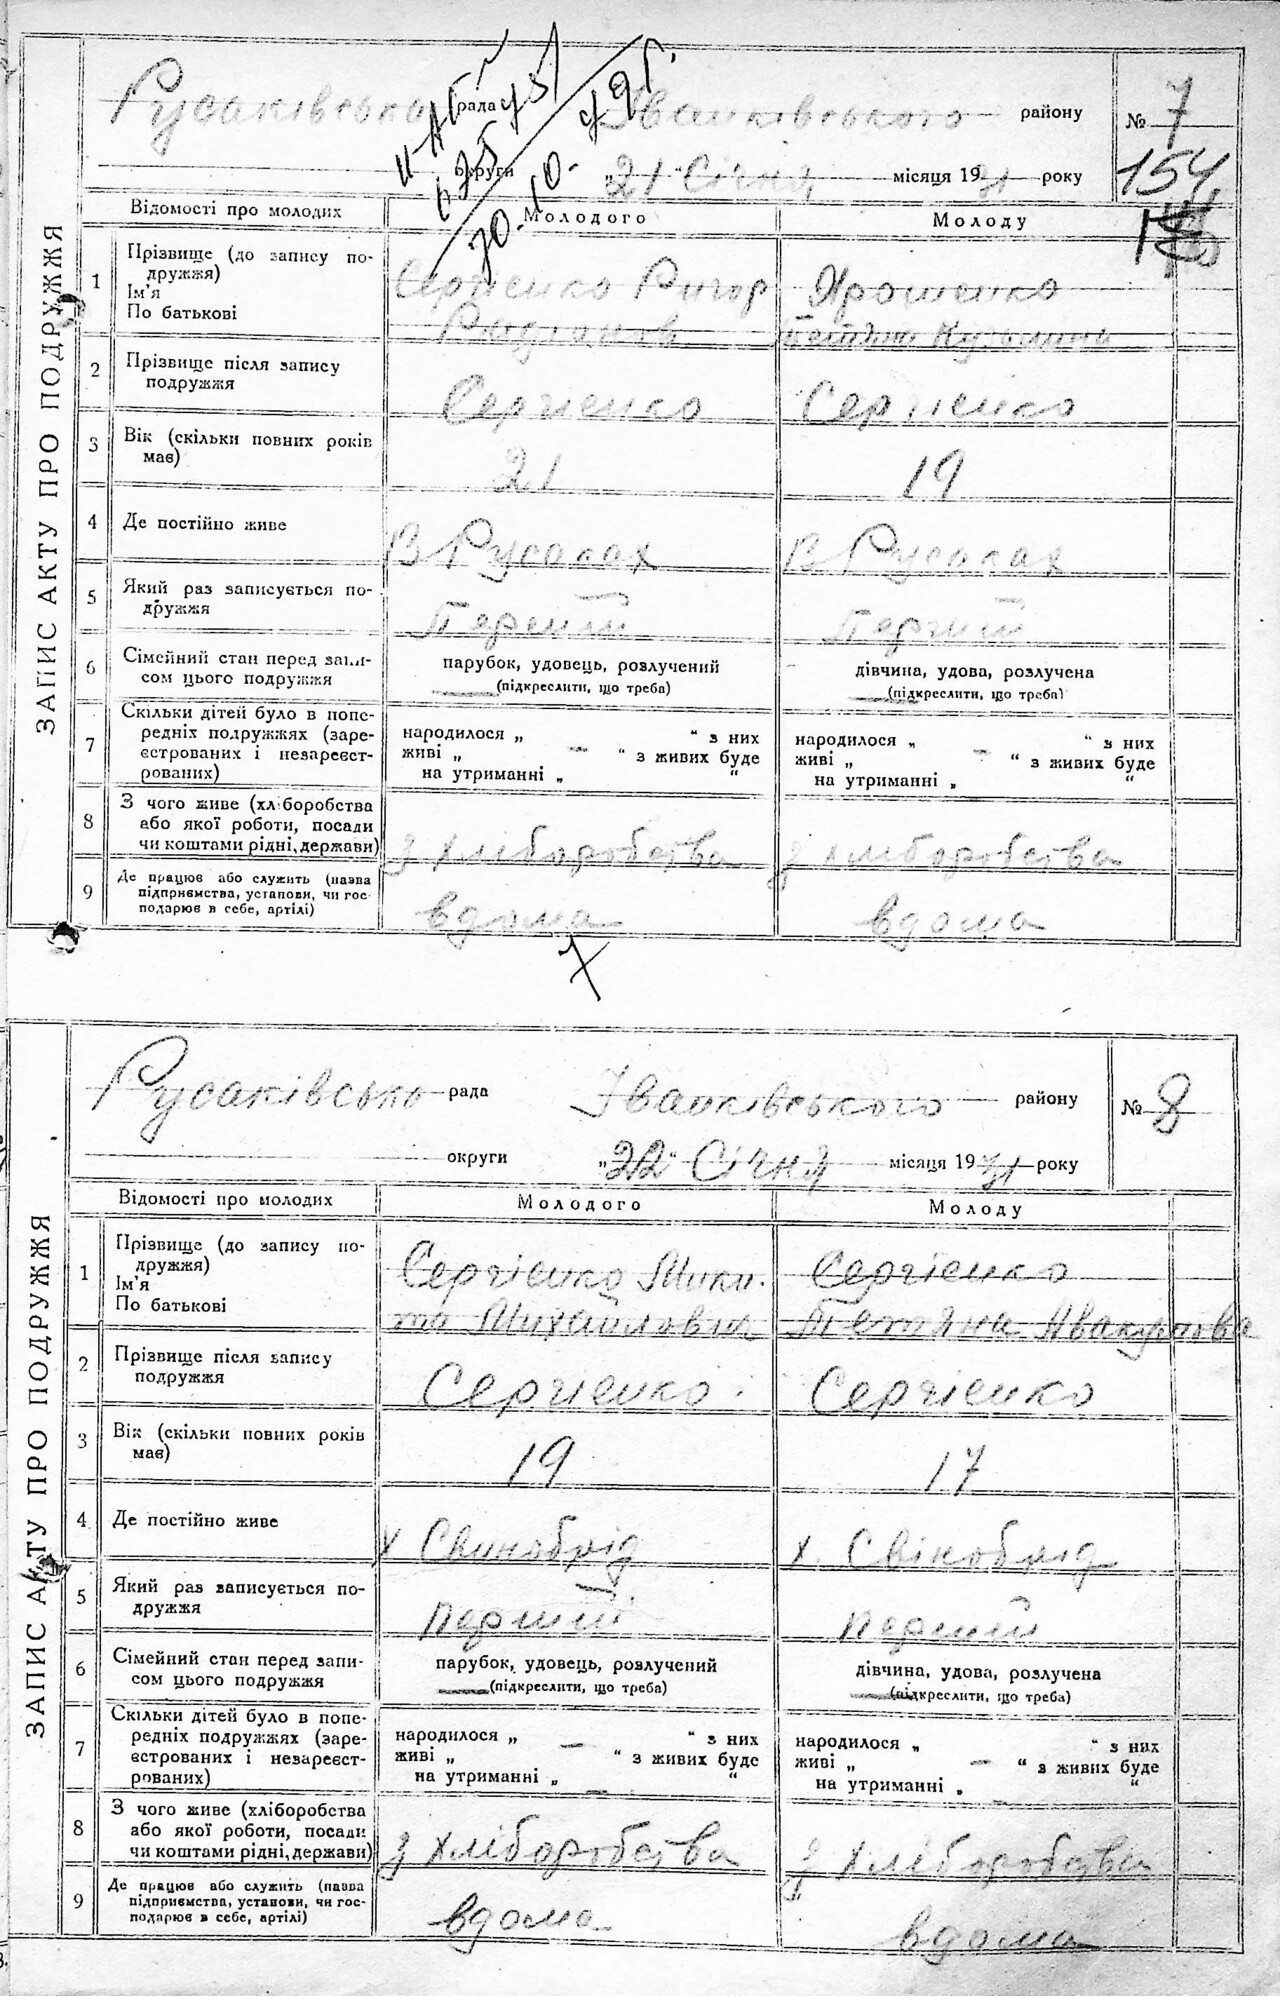 ЗАПИС АКТУ ПРО ПОДРУЖЖЯ
Русаківсько рада Іванківського району № 7
округи „21" Січня місяця 1931 року 154
Відомості про молодих Молодого Молоду
1 Прізвище (до запису по-
дружжя)
Ім'я
По батькові
Сергієнко Ригор
Родіонов
Ярошенко
Тетяна Кузьмина
2 Прізвище після запису
подружжя
Сергієнко Сергієнко
3 Вік (скільки повних років
має)
21 19
4 Де постійно живе В Русаках В Русаках
5 Який раз записується по-
дружжя
Перший Перший
6 Сімейний стан перед запи-
сом цього подружжя
парубок, удовець, розлучений
(підкреслити, що треба)
дівчина, удова, розлучена
(підкреслити, що треба)
7 Скільки дітей було в попе-
редніх подружжях (заре-
єстрованих і незареєст-
рованих)
народилося „ — " з них
живі „ " з живих буде
на утриманні „ "
народилося „ — " з них
живі „ " з живих буде
на утриманні „ "
8 З чого живе (хліборобства
або якої роботи, посади
чи коштами рідні, держави)
З хліборобства З хліборобства
9 Де працює або служить (назва
підприємства, установи, чи гос-
подарює в себе, артілі)
вдома вдома
ЗАПИС АКТУ ПРО ПОДРУЖЖЯ
Русаківсько рада Іванківського району № 8
округи „22" Січня місяця 1931 року
Відомості про молодих Молодого Молоду
1 Прізвище (до запису по-
дружжя)
Ім'я
По батькові
Сергієнко Мики-
та Михайлович
Сергієнко
Тетяна Авакумова
2 Прізвище після запису
подружжя
Сергієнко Сергієнко
3 Вік (скільки повних років
має)
19 17
4 Де постійно живе х Свинобрід х. Свінобрід
5 Який раз записується по-
дружжя
перший перший
6 Сімейний стан перед запи-
сом цього подружжя
парубок, удовець, розлучений
(підкреслити, що треба)
дівчина, удова, розлучена
(підкреслити, що треба)
7 Скільки дітей було в попе-
редніх подружжях (заре-
єстрованих і незареєст-
рованих)
народилося „ — " з них
живі „ " з живих буде
на утриманні „ — "
народилося „ — " з них
живі „ " з живих буде
на утриманні „ — "
8 З чого живе (хліборобства
або якої роботи, посади
чи коштами рідні, держави)
З хліборобства З хліборобства
9 Де працює або служить (назва
підприємства, установи, чи гос-
подарює в себе, артілі)
вдома вдома